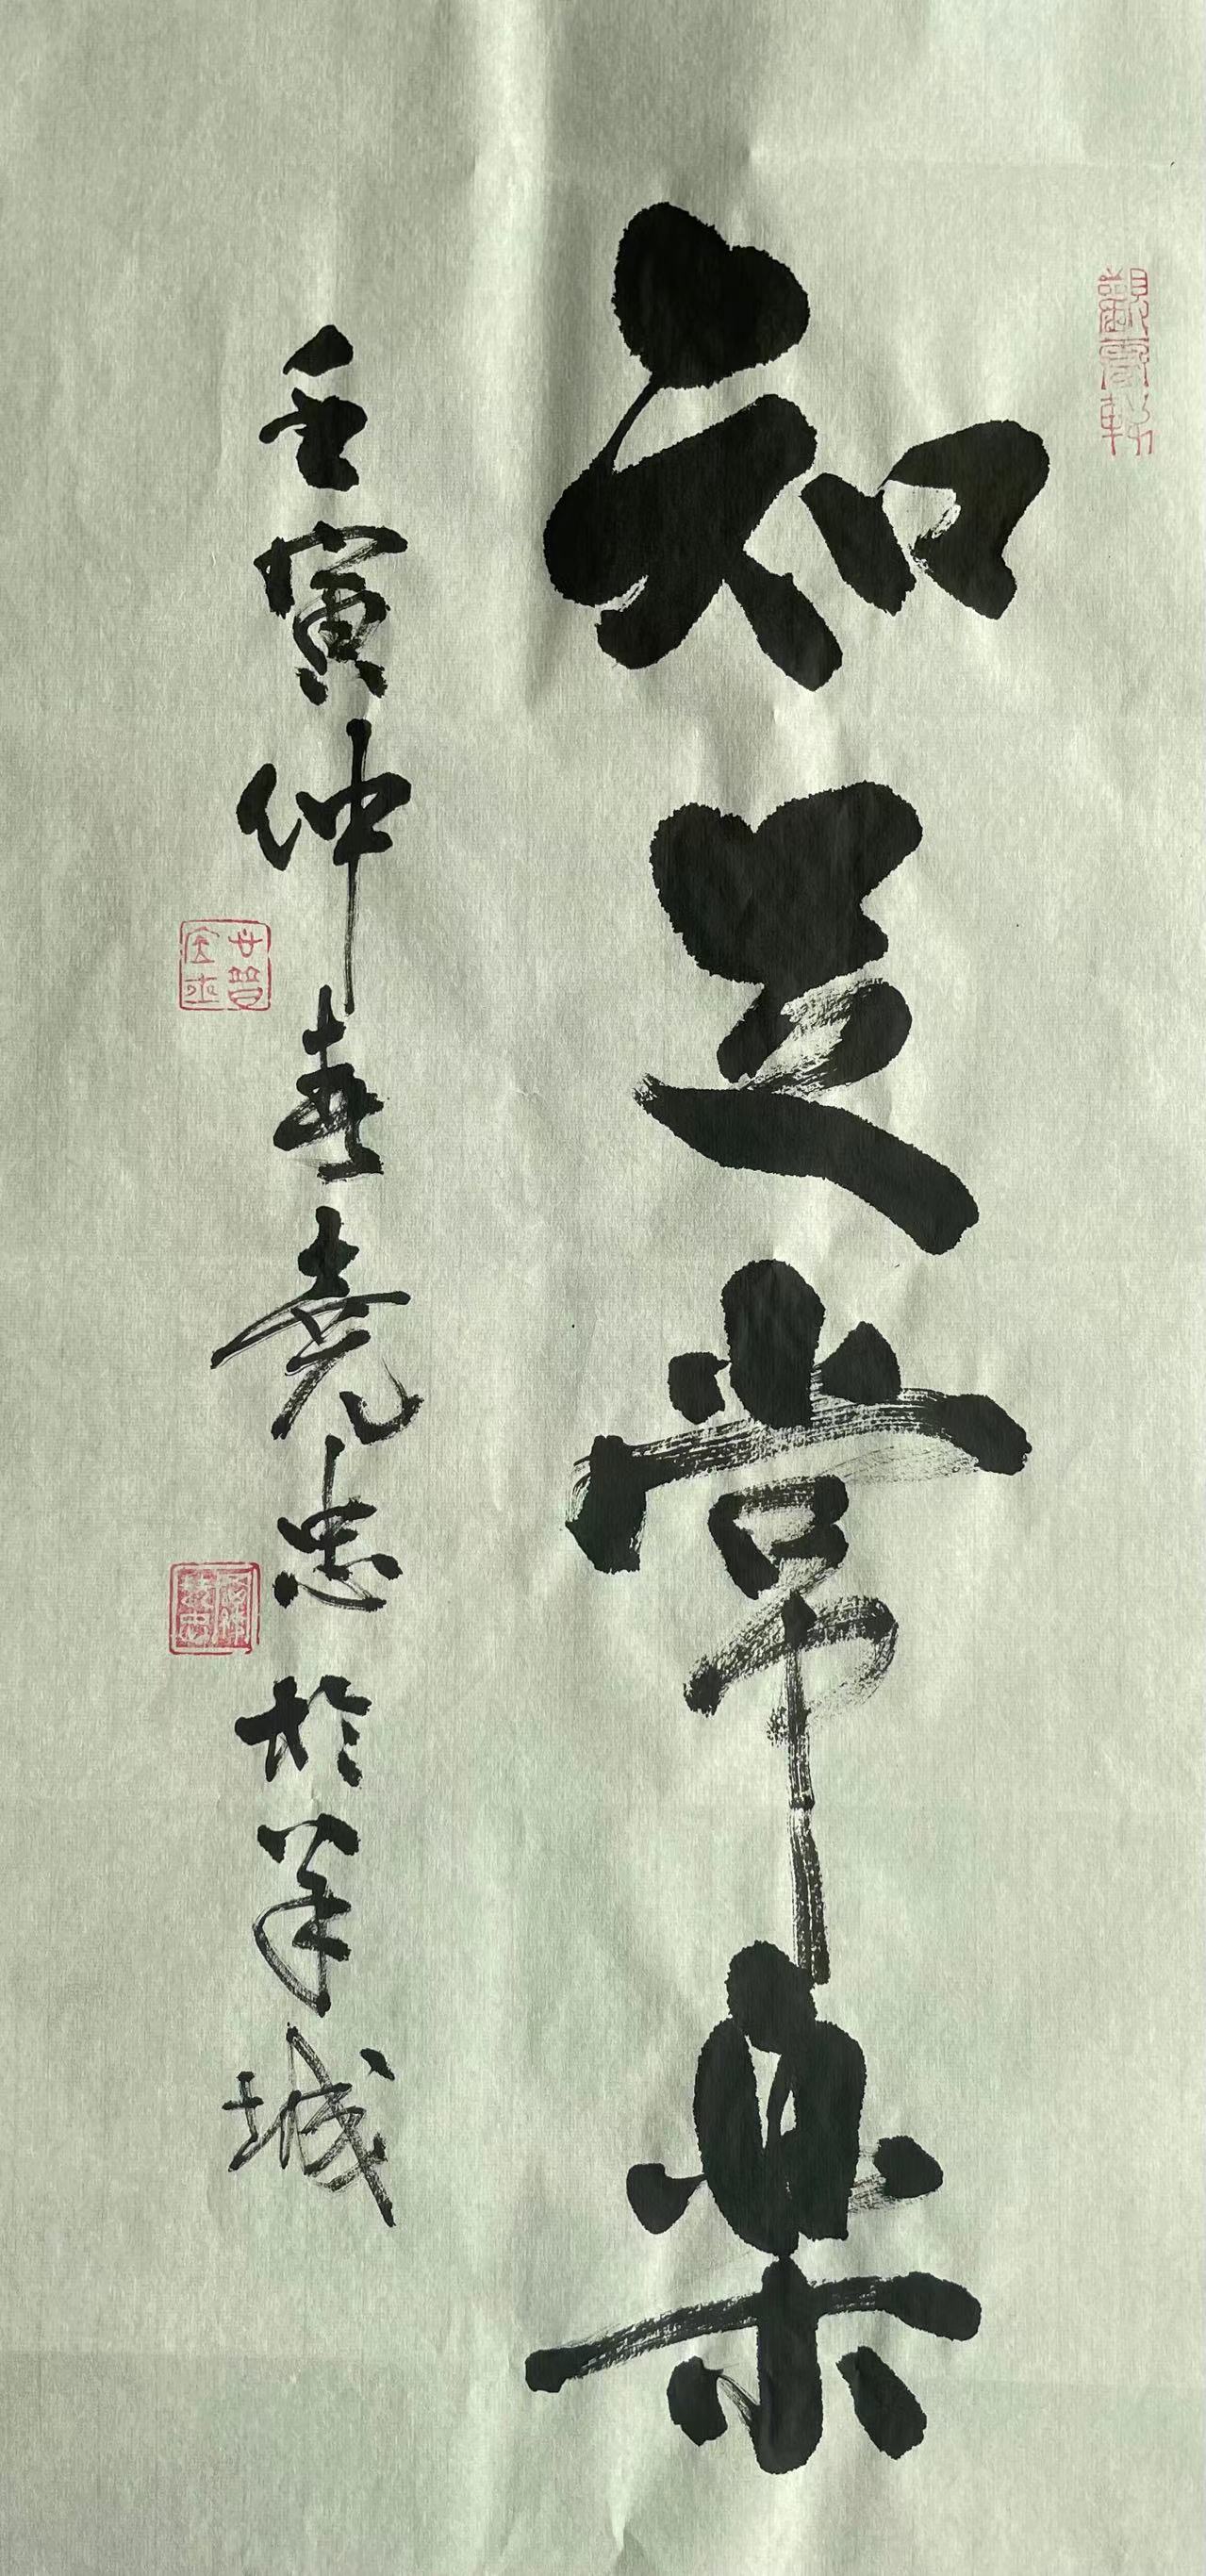 知足常樂
壬寅仲春堯忠於羊城